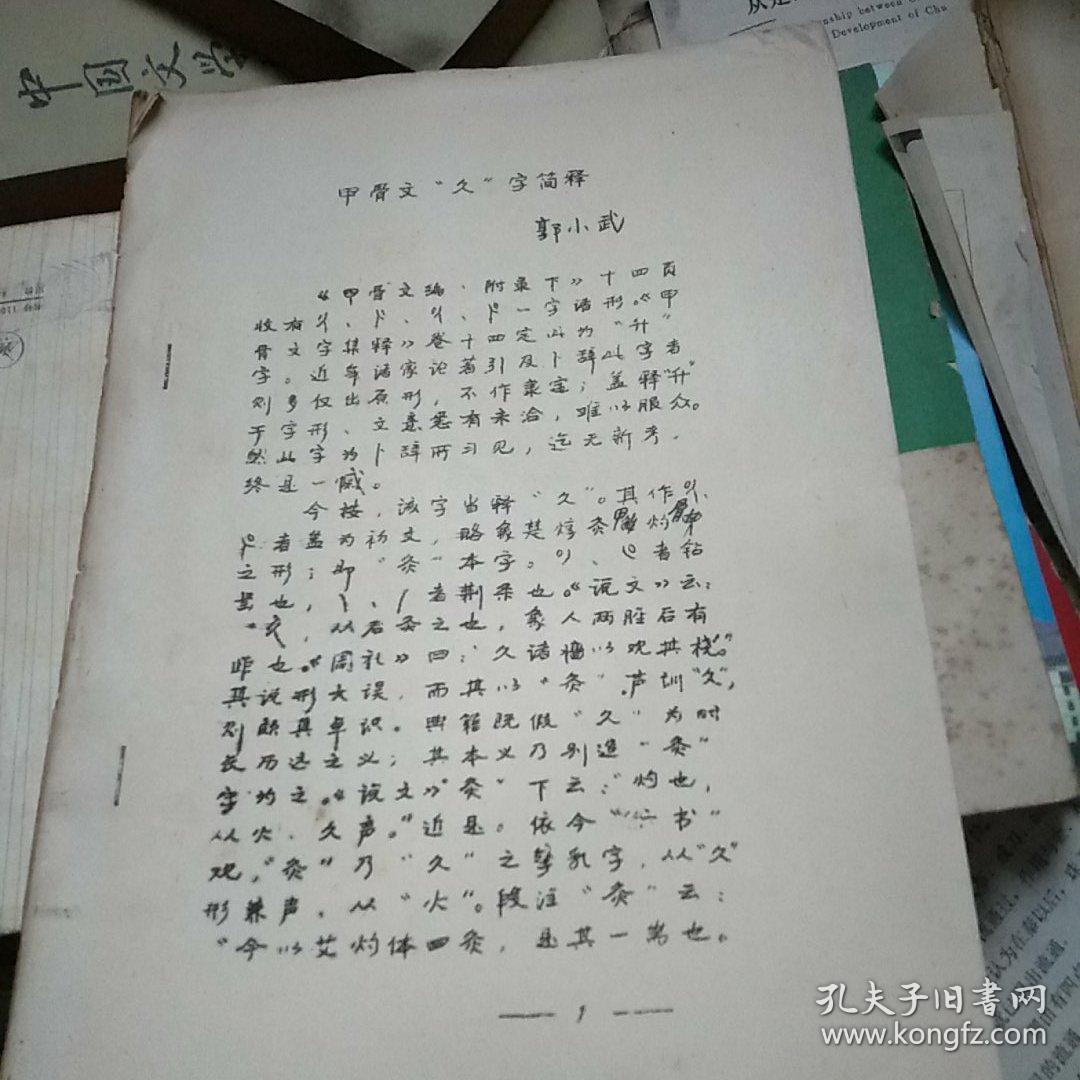 中国文学
nship between C
Development of Chu
甲骨文“久”字简释
郭小武
《甲骨文编·附录下》十四页
收有、、、一字诸形。《甲
骨文字集释》卷十四定此为“升”
字。近年诸家论著引及卜辞此字者
则多仅出原形，不作隶定；盖释“升”
于字形、文意悉有未洽，难以服众。
然此字为卜辞所习见，迄无新考，
终是一憾。
今按，该字当释“久”。其作、
者盖为初文，略象楚焞灸灼
之形；即“灸”本字。、者钻
凿也，、者荆条也。《说文》云：
“，从后灸之也，象人两胫后有
距也。《周礼》曰：‘久诸墙以观其桡’。”
其说形大误，而其以“灸”声训“久”，
则颇具卓识。典籍既假“久”为时
长历远之义；其本义乃别造“灸”
字为之。《说文》“灸”下云：“灼也，
从火、久声。”近是。依今“书”
观，“灸”乃“久”之孳乳字，从“久”
形兼声，从“火”。段注“灸”云：
“今以艾灼体曰灸，是其一耑也。
— 1 —
孔夫子旧书网
www.kongfz.com